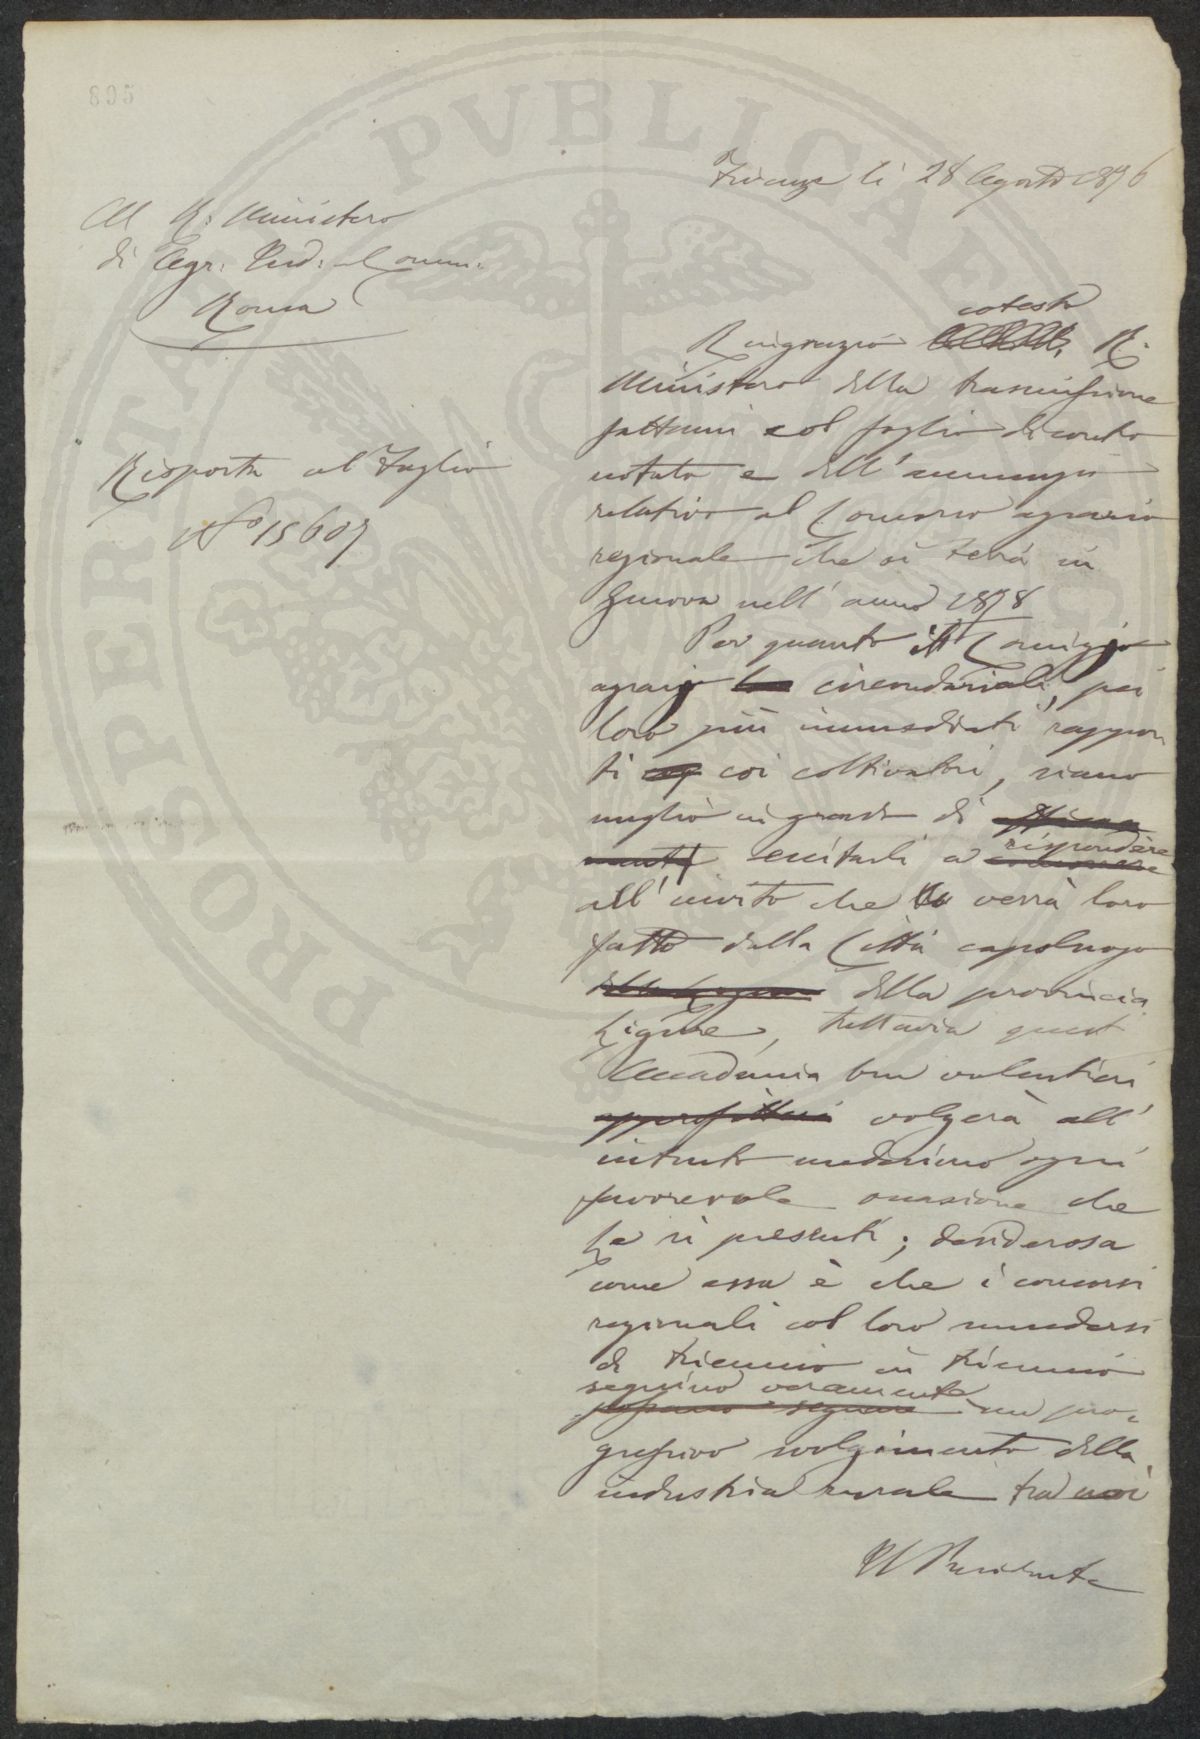 895
Firenze lì 28 Agosto 1876
Al R. Ministero
di Agr. Ind. e Comm.
Roma
Risposta al Foglio
N.o 15607
cotesto
Ringrazio R.
Ministero della trasmissione
fattami col foglio di contro
notato e dell'annunzio
relativo al Concorso agrario
regionale che si terrà in
Genova nell'anno 1878
Per quanto i Comizj
agrarj circondariali, pei
loro più immediati rappor
ti coi coltivatori, siano
meglio in grado di
eccitarli a rispondere
all'invito che verrà loro
fatto dalla Città capoluogo
della provincia
Ligure, tuttavia quest'
Accademia ben volentieri
approfitterà volgerà all'
intento medesimo ogni
favorevole occasione che
Le si presenti; desiderosa
come essa è che i concorsi
regionali col loro succedersi
di triennio in triennio
segnino veramente
possano segnare un pro=
gressivo svolgimento della
industria rurale tra noi
Il Presidente
PROSPERITATI PVBLICAE